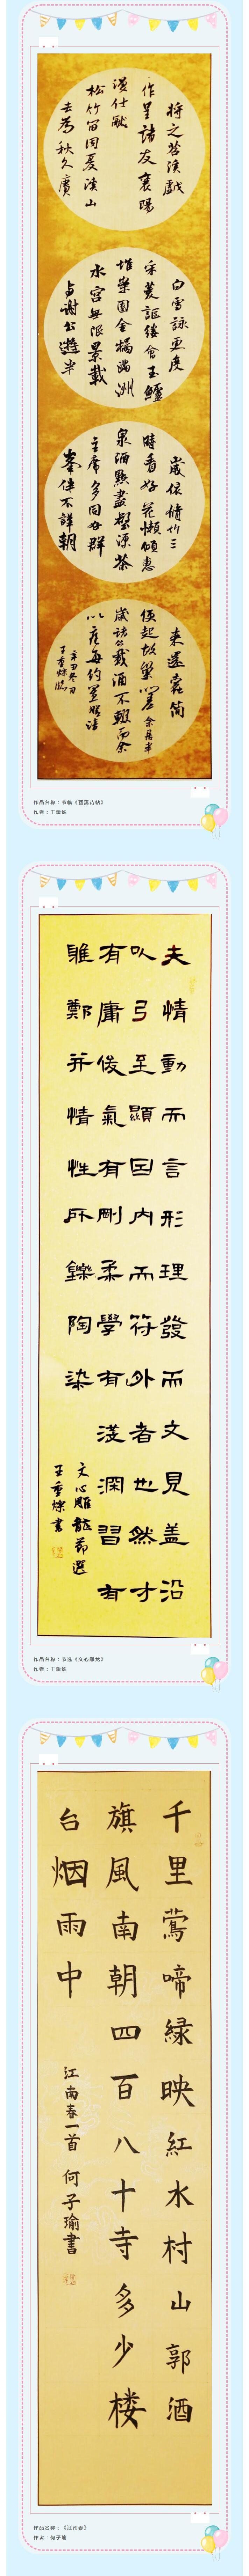 将之苕溪戲
作呈諸友襄陽
漫仕黻
松竹留因夏溪山
去為秋久賡
白雪詠更度
采菱謳縷會玉鱸
堆案團金橘滿洲
水宮無限景載
與謝公遊半
歲依脩竹三
時看好花懶傾惠
泉酒點盡壑源茶
主席多同好群
峯伴不譁朝
來還蠹簡
便起故巢嗟余居半
歲諸公載酒不輟而余
以疾每約置膳清
辛丑冬月
王重爍臨
作品名称：节临《苕溪诗帖》
作者：王重烁
夫情動而言形理發而文見盖沿
以至顯因内而符外者也然才
有庸俊氣有剛柔學有淺深習有
雅鄭并情性所鑠陶染
文心雕龍節選
王重爍書
作品名称：节选《文心雕龙》
作者：王重烁
千里鶯啼緑映紅水村山郭酒
旗風南朝四百八十寺多少楼
台烟雨中
江南春一首 何子瑜書
作品名称：《江南春》
作者：何子瑜